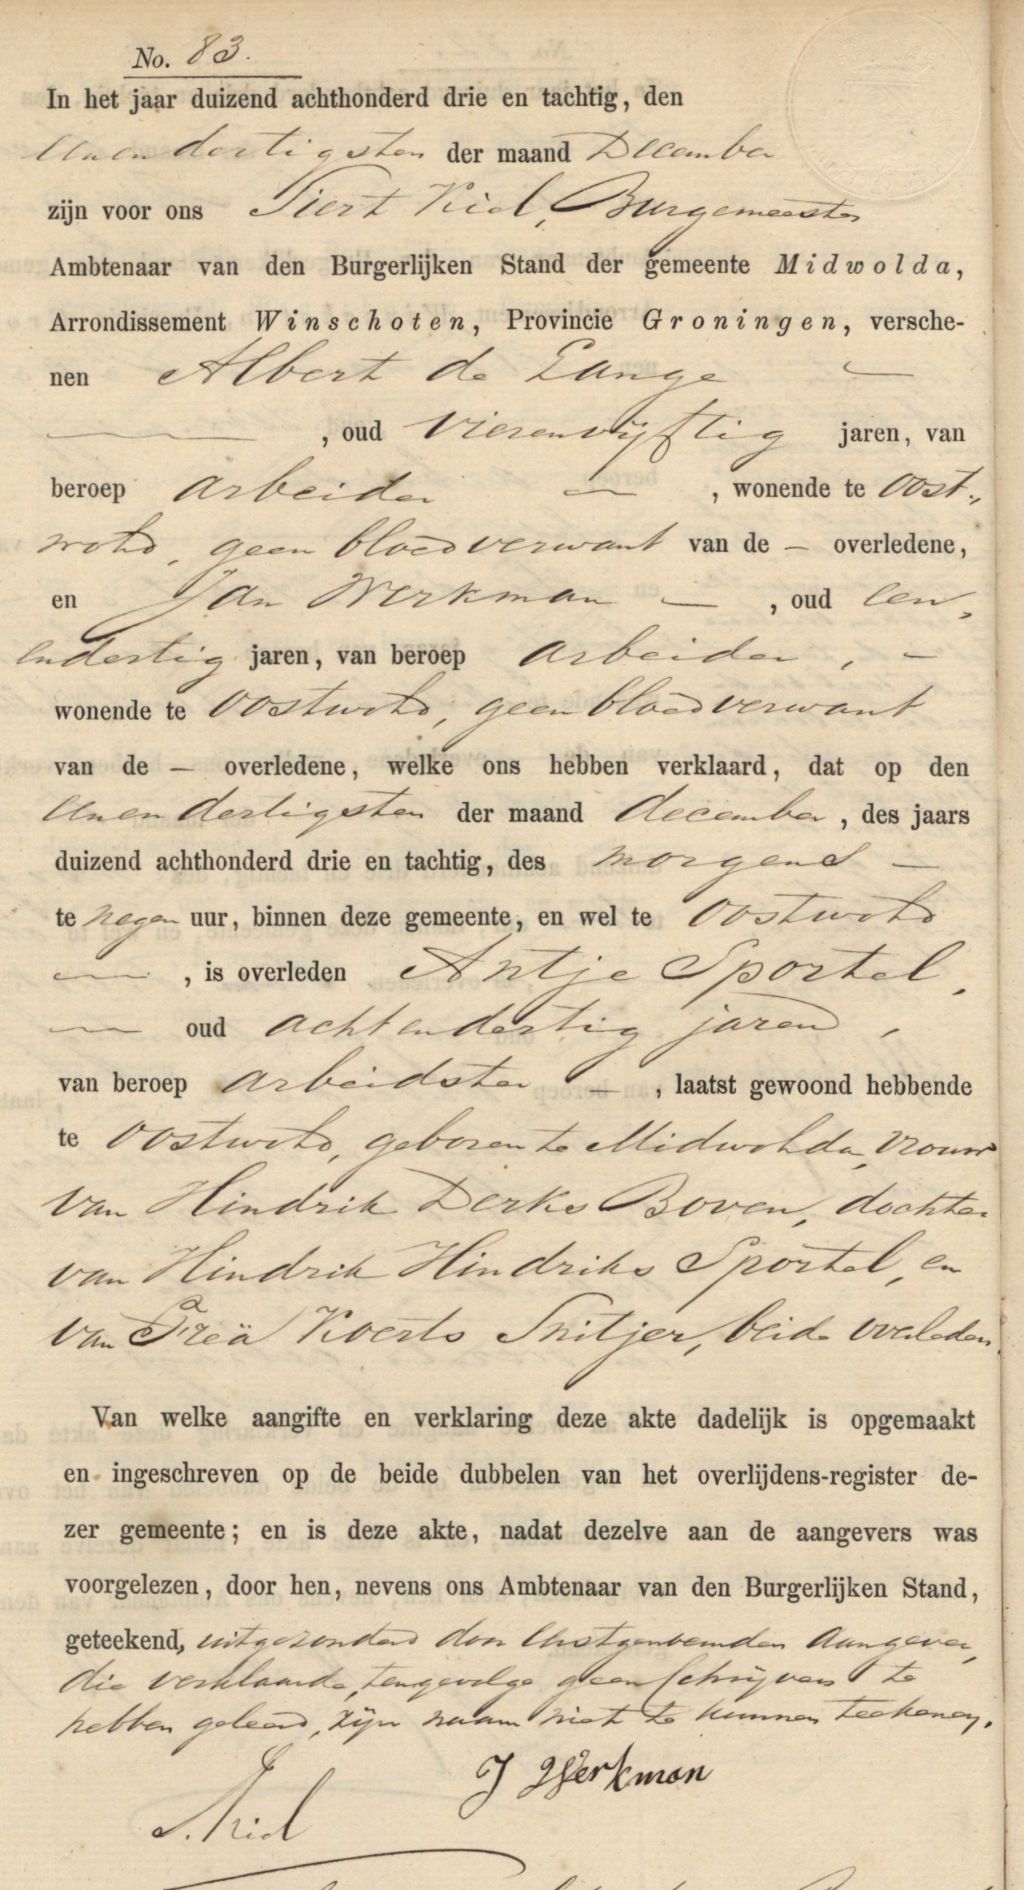 No. 83.
In het jaar duizend achthonderd drie en tachtig, den
eenendertigsten der maand December
zijn voor ons Tiert Kiel, Burgemeester
Ambtenaar van den Burgerlijken Stand der gemeente Midwolda,
Arrondissement Winschoten, Provincie Groningen, versche-
nen Albert de Lange —
— , oud vierenvijftig jaren, van
beroep arbeider — , wonende te Oost-
wold, geen bloedverwant van de — overledene,
en Jan Werkman — , oud een-
endertig jaren, van beroep arbeider, —
wonende te Oostwold, geen bloedverwant
van de — overledene, welke ons hebben verklaard, dat op den
eenendertigsten der maand december, des jaars
duizend achthonderd drie en tachtig, des morgens —
te negen uur, binnen deze gemeente, en wel te Oostwold
— , is overleden Antje Sportel,
— oud achtendertig jaren,
van beroep arbeidster — , laatst gewoond hebbende
te Oostwold, geboren te Midwolda, vrouw
van Hindrik Derks Boven, dochter
van Hindrik Hindriks Sportel, en
van Koerts Snitjer, beide overleden.
Van welke aangifte en verklaring deze akte dadelijk is opgemaakt
en ingeschreven op de beide dubbelen van het overlijdens-register de-
zer gemeente; en is deze akte, nadat dezelve aan de aangevers was
voorgelezen, door hen, nevens ons Ambtenaar van den Burgerlijken Stand,
geteekend, uitgezonderd door eerstgenoemden aangever,
die verklaarde, tengevolge geen schrijven te
hebben geleerd, zijn naam niet te kunnen teekenen.
J Werkman
T. Kiel